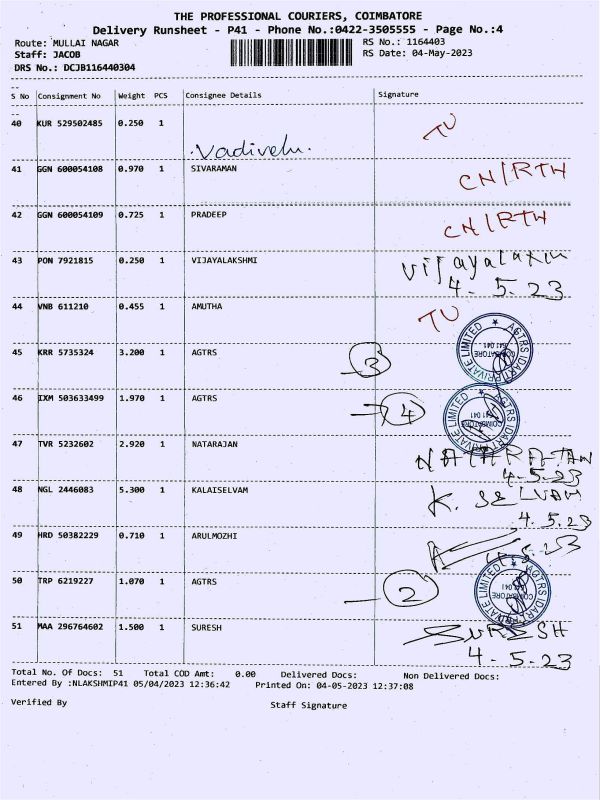 THE PROFESSIONAL COURIERS, COIMBATORE
Delivery Runsheet - P41 - Phone No.:0422-3505555 - Page No.:4
Route: MULLAI NAGAR RS No.: 1164403
Staff: JACOB RS Date: 04-May-2023
DRS No.: DCJB116440304
S No Consignment No Weight PCS Consignee Details Signature
40 KUR 529502485 0.250 1 TU
Vadivelu.
41 GGN 600054108 0.970 1 SIVARAMAN CN/RTN
42 GGN 600054109 0.725 1 PRADEEP CN/RTN
43 PON 7921815 0.250 1 VIJAYALAKSHMI
4-5-23
44 VNB 611210 0.455 1 AMUTHA TU
45 KRR 5735324 3.200 1 AGTRS 3
46 IXM 503633499 1.970 1 AGTRS 4
47 TVR 5232602 2.920 1 NATARAJAN
4-5-23
48 NGL 2446083 5.300 1 KALAISELVAM K. SELVAM
4.5.23
49 HRD 50382229 0.710 1 ARULMOZHI
50 TRP 6219227 1.070 1 AGTRS 2
51 MAA 296764602 1.500 1 SURESH SURESH
4-5-23
Total No. Of Docs: 51 Total COD Amt: 0.00 Delivered Docs: Non Delivered Docs:
Entered By :NLAKSHMIP41 05/04/2023 12:36:42 Printed On: 04-05-2023 12:37:08
Verified By Staff Signature